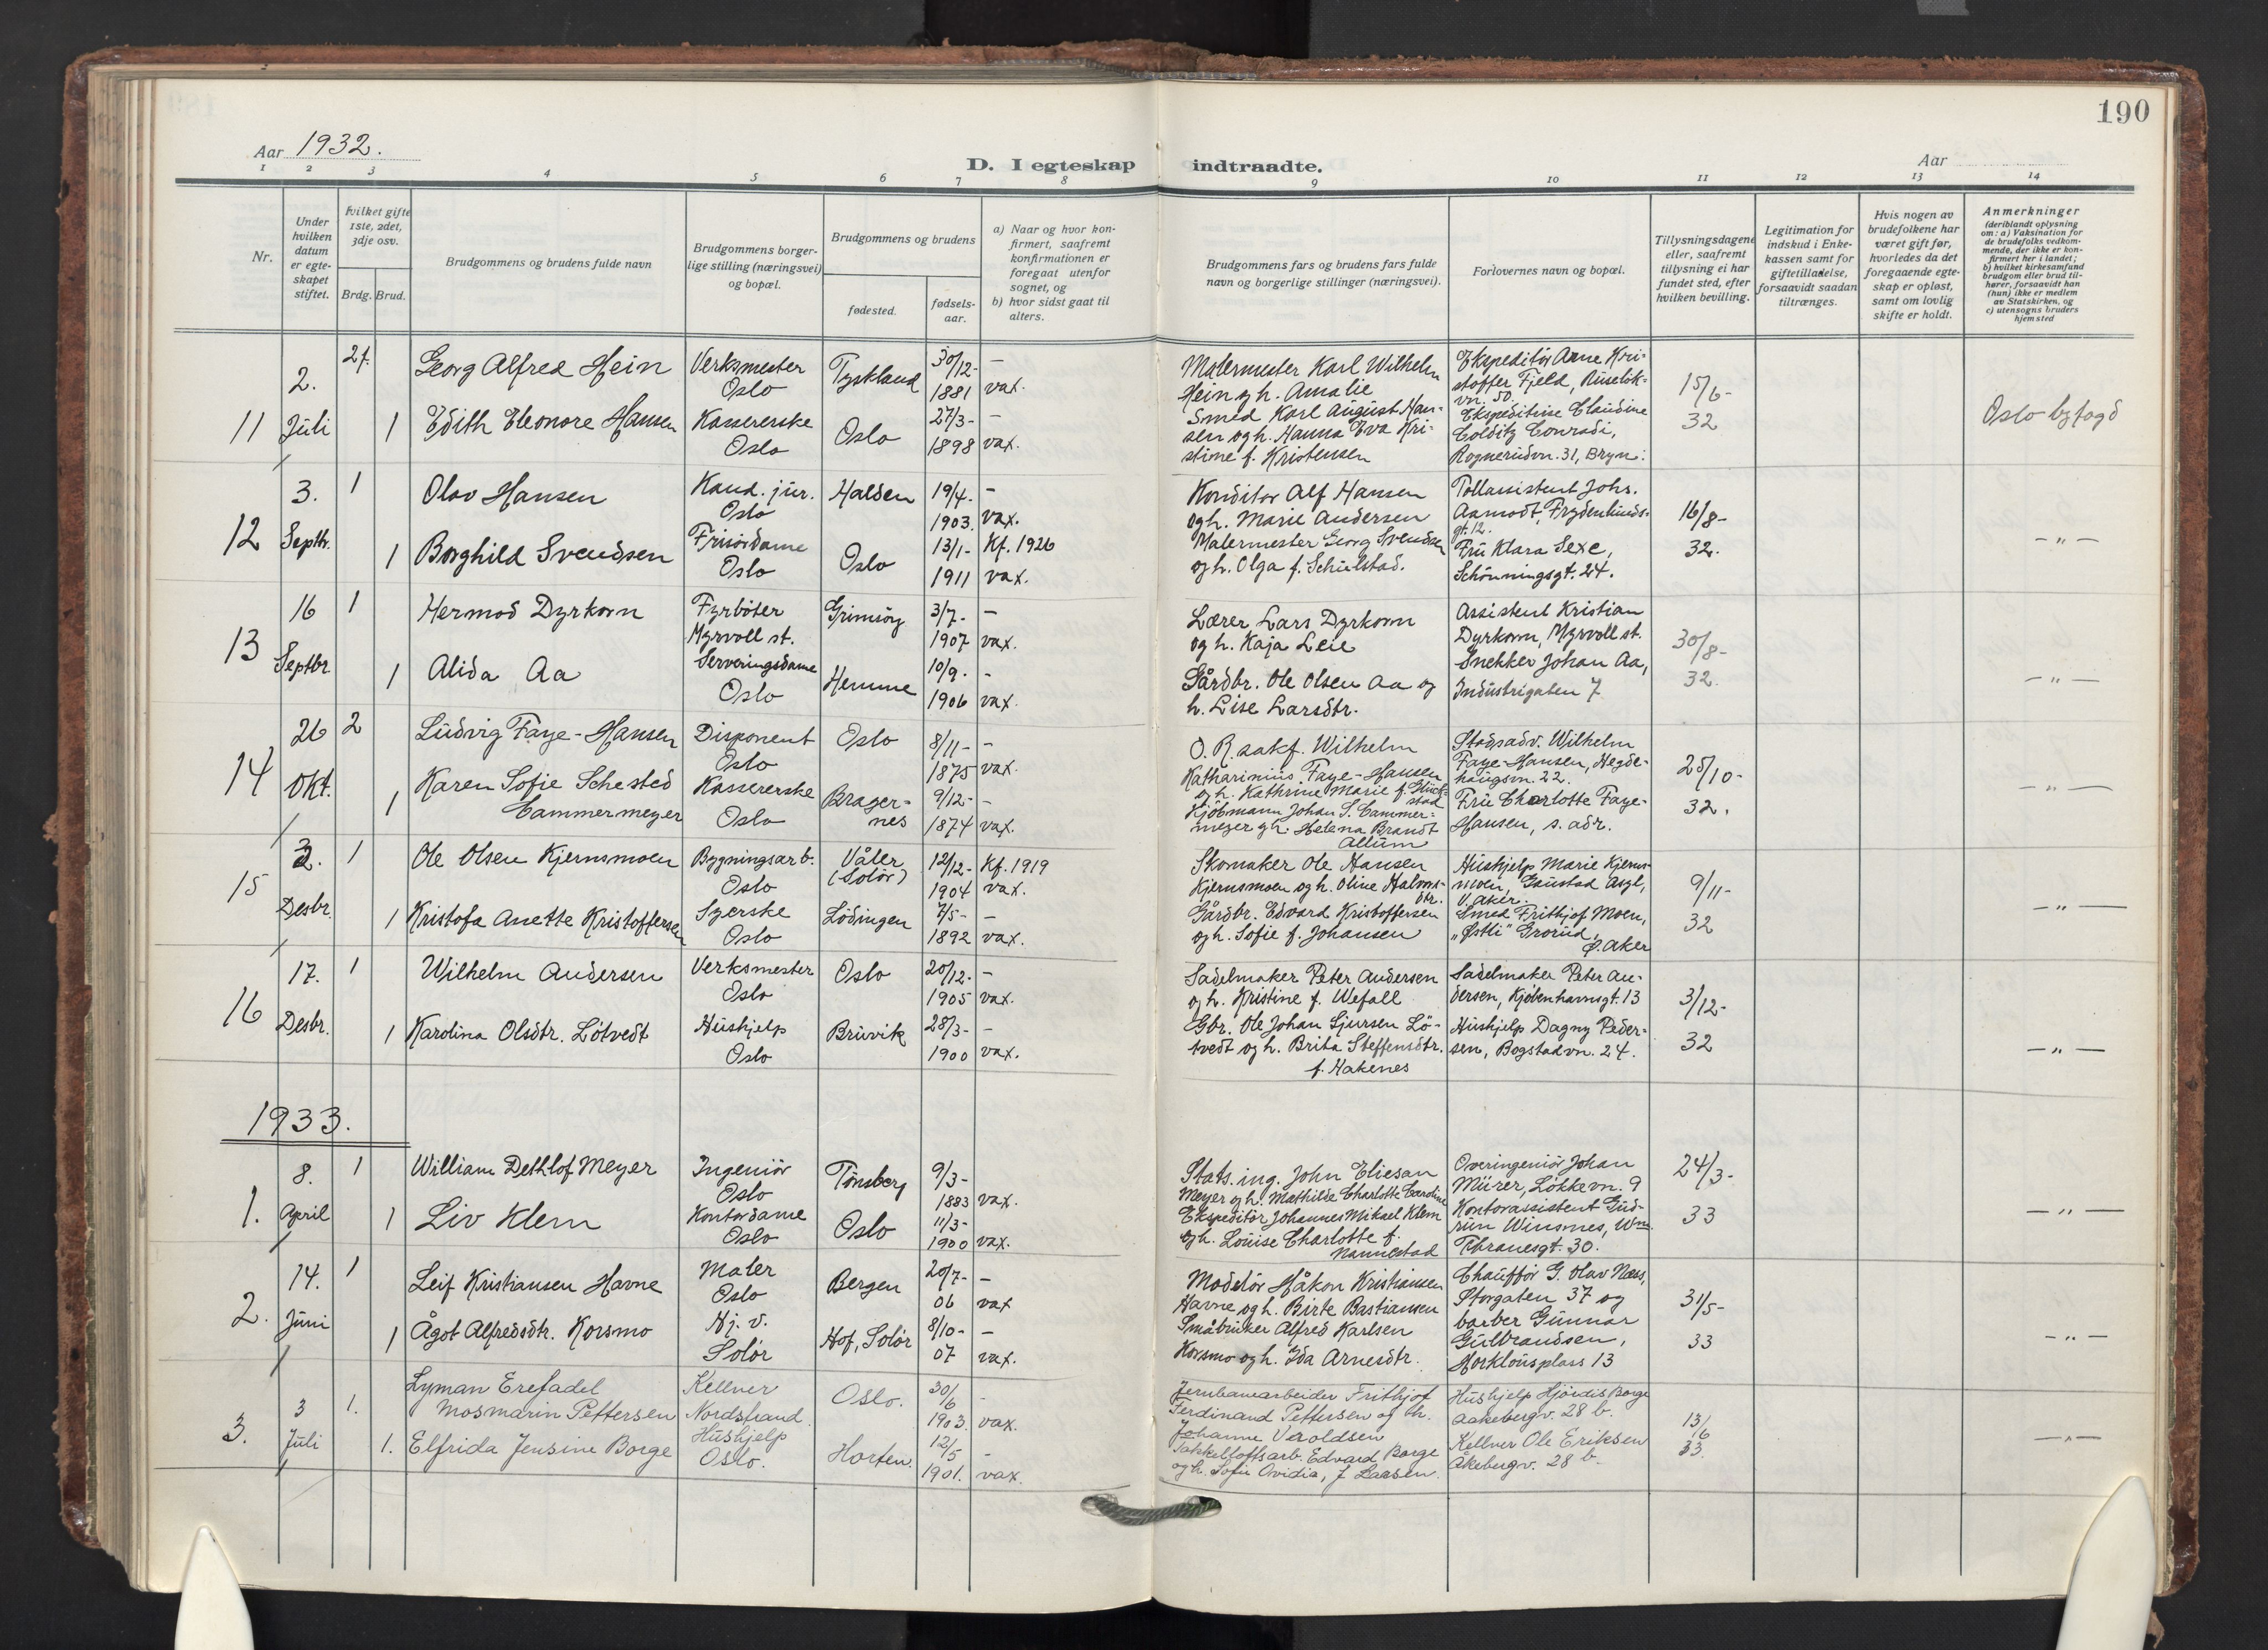 190
Aar 1932.
D. I egteskap indtraadte.
Aar
1 2 3 4 5 6 7 8 9 10 11 12 13 14
Nr.
Under hvilken datum er egteskapet stiftet.
hvilket gifte 1ste, 2det, 3dje osv.
Brdg. Brud.
Brudgommens og brudens fulde navn
Brudgommens borgerlige stilling (næringsvei) og bopæl.
Brudgommens og brudens
fødested.
fødselsaar.
a) Naar og hvor konfirmert, saafremt konfirmationen er foregaat utenfor sognet, og
b) hvor sidst gaat til alters.
Brudgommens fars og brudens fars fulde navn og borgerlige stillinger (næringsvei).
Forlovernes navn og bopæl.
Tillysningsdagene eller, saafremt tillysning ei har fundet sted, efter hvilken bevilling.
Legitimation for indskud i Enkekassen samt for giftetilladelse, forsaavidt saadan tiltrænges.
Hvis nogen av brudefolkene har været gift før, hvorledes da det foregaaende egteskap er opløst, samt om lovlig skifte er holdt.
Anmerkninger (deriblandt oplysning om: a) Vaksination for de brudefolks vedkommende, der ikke er konfirmert her i landet; b) hvilket kirkesamfund brudgom eller brud tilhører, forsaavidt han (hun) ikke er medlem av Statskirken, og c) utensogns bruders hjemsted
11
2. Juli
2f.
Georg Alfred Hein
Verksmester Oslo
Tyskland
30/12- 1881
- vax.
Malermester Karl Wilhelm
Hein og h. Amalie
Ekspeditör Arne Kri-
stoffer Fjeld, Ruselök-
vn. 50.
15/6- 32
Oslo byfogd
1
Edith Eleonore Hansen
Kassererske Oslo
Oslo
27/3- 1898
- vax.
Smed Karl August Han-
sen og h. Hanna Eva Kri-
stine f. Kristensen
Ekspeditrise Claudine
Colditz Conradi,
Rognerudvn. 31, Bryn.
12
3. Septbr.
1
Olav Hansen
Kand. jur. Oslo
Halden
19/4- 1903.
- vax.
Konditor Alf Hansen
og h. Marie Andersen
Tollassistent Johs.
Aamodt, Frydenlunds-
gt. 12.
16/8- 32.
- " -
1
Borghild Svendsen
Frisördame Oslo
Oslo
13/1- 1911
Kf. 1926 vax.
Malermester Georg Svendsen
og h. Olga f. Schulstad.
Fru Klara Sexe,
Schönningsgt. 24.
13
16 Septbr.
1
Hermod Dyrkorn
Fyrböter Myrvoll st.
Grimsöy
3/7- 1907
- vax.
Lærer Lars Dyrkorn
og h. Kaja Leie
Assistent Kristian
Dyrkorn, Myrvoll st.
30/8- 32.
- " -
1
Alida Aa
Serveringsdame Oslo
Hemne
10/9- 1906
- vax.
Gårdbr. Ole Olsen Aa og
h. Lise Larsdtr.
Snekker Johan Aa,
Industrigaten 7
14
26 Okt.
2
Ludvig Faye-Hansen
Disponent Oslo
Oslo
8/11- 1875
- vax.
O. R. sakf. Wilhelm
Katharinius Faye-Hansen
og h. Kathrine Marie f. Glück-
stad
Stadsadv. Wilhelm
Faye-Hansen, Hegde-
haugsvn. 22.
25/10- 32.
- " -
1
Karen Sofie Schested
Cammermeyer
Kassererske Oslo
Brager-
nes
9/12- 1874
- vax.
Kjöbmann Johan S. Cammer-
meyer og h. Helena Brandt
Allum
Fru Charlotte Faye-
Hansen, s. adr.
15
3. Desbr.
1
Ole Olsen Kjernsmoen
Bygningsarb. Oslo
Våler
(Solör)
12/12- 1904
Kf. 1919 vax.
Skomaker Ole Hansen
Kjernsmoen og h. Oline Halvors-
dtr.
Hushjelp Marie Kjerns-
moen, Gaustad Asyl,
V. Aker.
9/11- 32
- " -
1
Kristofa Anette Kristoffersen
Syerske Oslo
Lödingen
7/5- 1892
- vax.
Gårdbr. Edvard Kristoffersen
og h. Sofie f. Johansen
Smed Frithjof Moen,
"Østli" Grorud,
Ø. Aker
16
17. Desbr.
1
Wilhelm Andersen
Verksmester Oslo
Oslo
20/12- 1905
- vax.
Sadelmaker Peter Andersen
og h. Kristine f. Wefall
Sadelmaker Peter An-
dersen, Kjöbenhavnsgt. 13
3/12- 32
- " -
1
Karolina Olsdtr. Lötvedt
Hushjelp Oslo
Bruvik
28/3- 1900
- vax.
Gbr. Ole Johan Sjursen Lö-
tvedt og h. Brita Steffensdtr.
f. Hakenes
Hushjelp Dagny Peder-
sen, Bogstadvn. 24.
1933.
1.
8. April
1
William Dethlof Meyer
Ingeniör Oslo
Tönsberg
9/3- 1883
vax.
Stats. ing. John Eliesan
Meyer og h. Mathilde Charlotte Caroline
Overingeniör Johan
Mürer, Lökkevn. 9
24/3- 33
- " -
1
Liv Klem
Kontordame Oslo
Oslo
11/3- 1900
vax.
Ekspeditör Johannes Mikael Klem
og h. Louise Charlotte f.
Nannestad
Kontorassistent Gud-
run Winsnes, Wm.
Thranesgt. 30.
2.
14. Juni
1
Leif Kristiansen Havne
Maler Oslo
Bergen
20/7- 06
- vax
Modelör Håkon Kristiansen
Havne og h. Birte Bastiansen
Chaufför G. Olav Næss,
Storgaten 37 og
31/5- 33
- " -
1
Ågot Alfredsdtr. Korsmo
Hj. v. Solör
Hof, Solör
8/10- 07
- vax.
Småbruker Alfred Karlsen
Korsmo og h. Ida Arnesdtr.
barber Gunnar
Gulbrandsen,
Horklousplass 13
3.
3 Juli
1.
Lyman Erefadel
Mosmarin Pettersen
Kellner Nordstrand.
Oslo.
30/6 1903.
- vax.
Jernbanearbeider Frithjof
Ferdinand Pettersen og h.
Johanne Veroldsen
Hushjelp Hjördis Borge
Aakebergv. 28 b.
13/6 33.
- " -
1.
Elfrida Jensine Borge
Hushjelp Oslo.
Horten.
12/5 1901.
- vax.
Takkelloftsarb. Edvard Borge
og h. Sofie Ovidia, f. Larsen.
Kellner Ole Eriksen
Åkebergv. 28 b.